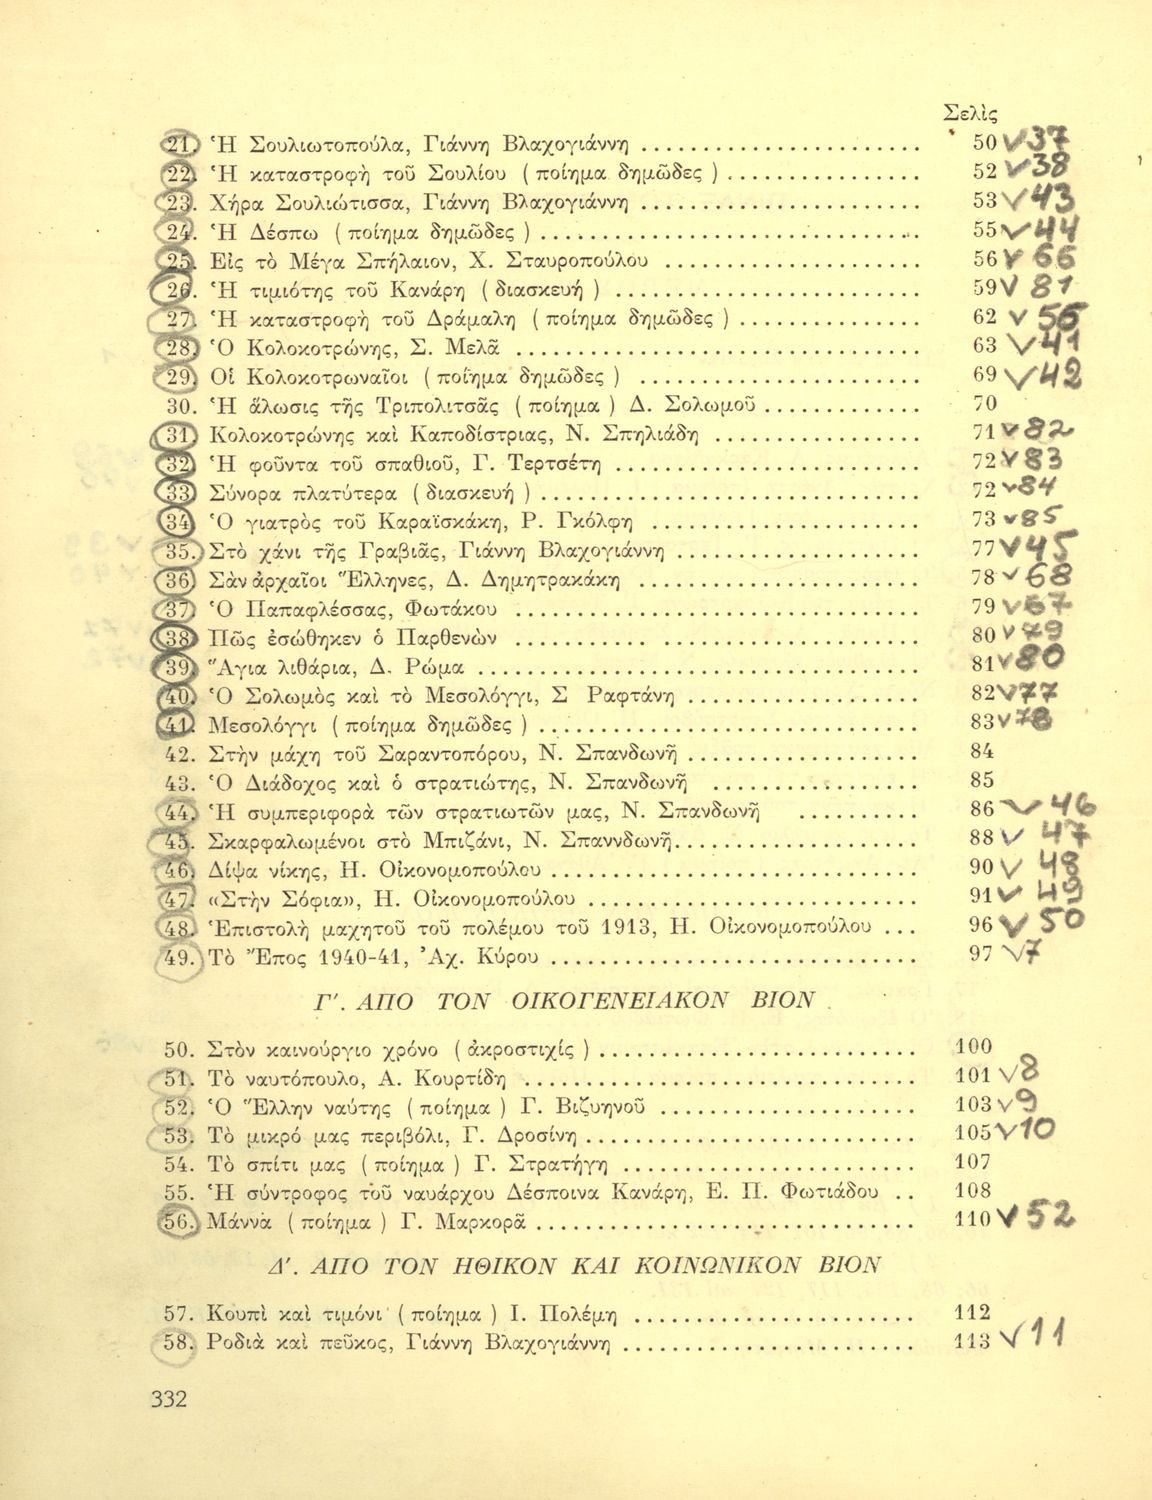 Σελὶς
21. Ἡ Σουλιωτοπούλα, Γιάννη Βλαχογιάννη ........................ 50 ✓37
22. Ἡ καταστροφὴ τοῦ Σουλίου ( ποίημα δημῶδες ) ................ 52 ✓38
23. Χήρα Σουλιώτισσα, Γιάννη Βλαχογιάννη ........................ 53 ✓43
24. Ἡ Δέσπω ( ποίημα δημῶδες ) ................................ 55 ✓44
25. Εἰς τὸ Μέγα Σπήλαιον, Χ. Σταυροπούλου ...................... 56 ✓66
26. Ἡ τιμιότης τοῦ Κανάρη ( διασκευή ) .......................... 59 ✓81
27. Ἡ καταστροφὴ τοῦ Δράμαλη ( ποίημα δημῶδες ) ................ 62 ✓56
28. Ὁ Κολοκοτρώνης, Σ. Μελᾶ .................................. 63 ✓41
29. Οἱ Κολοκοτρωναῖοι ( ποίημα δημῶδες ) ........................ 69 ✓42
30. Ἡ ἅλωσις τῆς Τριπολιτσᾶς ( ποίημα ) Δ. Σολωμοῦ ............. 70
31. Κολοκοτρώνης καὶ Καποδίστριας, Ν. Σπηλιάδη .................. 71 ✓82
32. Ἡ φοῦντα τοῦ σπαθιοῦ, Γ. Τερτσέτη .......................... 72 ✓83
33. Σύνορα πλατύτερα ( διασκευή ) ................................ 72 ✓84
34. Ὁ γιατρὸς τοῦ Καραϊσκάκη, Ρ. Γκόλφη ....................... 73 ✓85
35. Στὸ χάνι τῆς Γραβιᾶς, Γιάννη Βλαχογιάννη .................... 77 ✓45
36. Σὰν ἀρχαῖοι Ἕλληνες, Δ. Δημητρακάκη ........................ 78 ✓68
37. Ὁ Παπαφλέσσας, Φωτάκου .................................. 79 ✓67
38. Πῶς ἐσώθηκεν ὁ Παρθενών .................................. 80 ✓79
39. Ἅγια λιθάρια, Δ. Ρώμα ...................................... 81 ✓80
40. Ὁ Σολωμὸς καὶ τὸ Μεσολόγγι, Σ Ραφτάνη .................... 82 ✓77
41. Μεσολόγγι ( ποίημα δημῶδες ) ................................ 83 ✓78
42. Στὴν μάχη τοῦ Σαραντοπόρου, Ν. Σπανδωνῆ .................... 84
43. Ὁ Διάδοχος καὶ ὁ στρατιώτης, Ν. Σπανδωνῆ .................. 85
44. Ἡ συμπεριφορὰ τῶν στρατιωτῶν μας, Ν. Σπανδωνῆ .......... 86 ✓46
45. Σκαρφαλωμένοι στὸ Μπιζάνι, Ν. Σπαννδωνῆ .................... 88 ✓47
46. Δίψα νίκης, Η. Οἰκονομοπούλου .............................. 90 ✓48
47. «Στὴν Σόφια», Η. Οἰκονομοπούλου ............................ 91 ✓49
48. Ἐπιστολὴ μαχητοῦ τοῦ πολέμου τοῦ 1913, Η. Οἰκονομοπούλου ... 96 ✓50
49. Τὸ Ἔπος 1940-41, Ἀχ. Κύρου ................................ 97 ✓7
Γ'. ΑΠΟ ΤΟΝ ΟΙΚΟΓΕΝΕΙΑΚΟΝ ΒΙΟΝ
50. Στὸν καινούργιο χρόνο ( ἀκροστιχίς ) .......................... 100
51. Τὸ ναυτόπουλο, Α. Κουρτίδη ................................ 101 ✓8
52. Ὁ Ἕλλην ναύτης ( ποίημα ) Γ. Βιζυηνοῦ ...................... 103 ✓9
53. Τὸ μικρό μας περιβόλι, Γ. Δροσίνη ............................ 105 ✓10
54. Τὸ σπίτι μας ( ποίημα ) Γ. Στρατήγη ........................ 107
55. Ἡ σύντροφος τοῦ ναυάρχου Δέσποινα Κανάρη, Ε. Π. Φωτιάδου .. 108
56. Μάννα ( ποίημα ) Γ. Μαρκορᾶ ................................ 110 ✓52
Δ'. ΑΠΟ ΤΟΝ ΗΘΙΚΟΝ ΚΑΙ ΚΟΙΝΩΝΙΚΟΝ ΒΙΟΝ
57. Κουπὶ καὶ τιμόνι ( ποίημα ) Ι. Πολέμη ........................ 112
58. Ροδιὰ καὶ πεῦκος, Γιάννη Βλαχογιάννη ........................ 113 ✓11
332